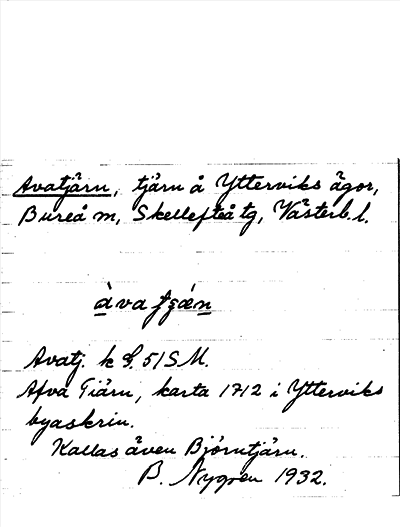 Avatjärn, tjärn å Ytterviks ägor,
Bureå m, Skellefteå tg, Västerb. l.
Avatj. k 51 SM.
Afva Tiärn, karta 1712 i Ytterviks
byaskrin.
Kallas även Björntjärn.
B. Nygren 1932.